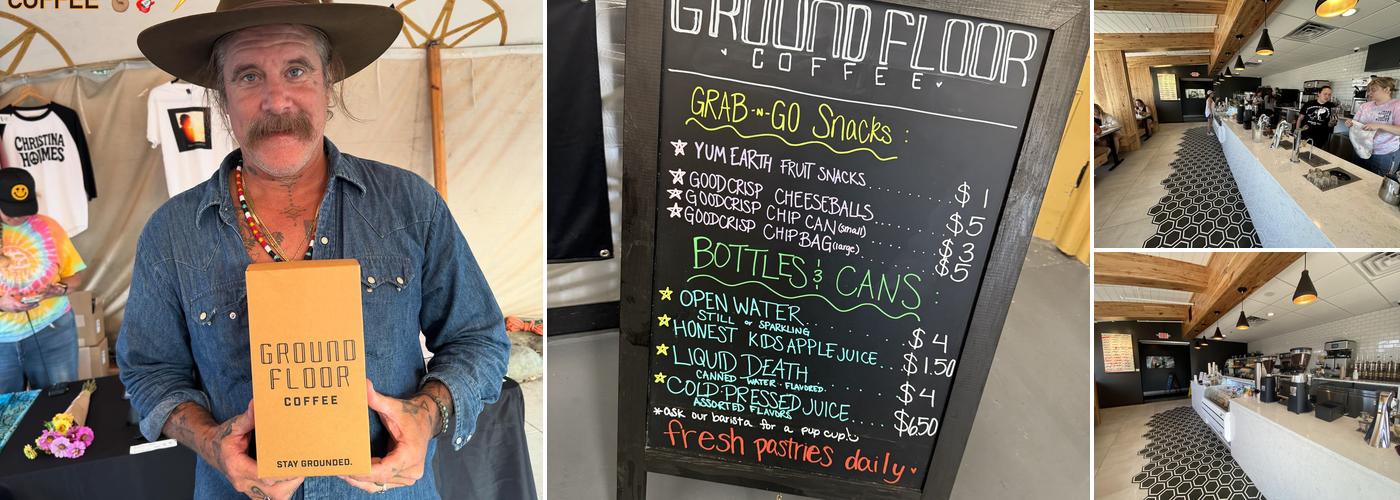 COFFEE
CHRISTINA
HOLMES
GROUND
FLOOR
COFFEE
STAY GROUNDED.
GROUND FLOOR
COFFEE
GRAB-N-GO Snacks:
YUM EARTH FRUIT SNACKS........ $1
GOODCRISP CHEESEBALLS........ $5
GOODCRISP CHIP CAN (small)........ $3
GOODCRISP CHIP BAG (large)........ $5
BOTTLES & CANS:
OPEN WATER........ $4
STILL or SPARKLING
HONEST KIDS APPLE JUICE... $1.50
LIQUID DEATH........ $4
CANNED WATER · FLAVORED.
COLD-PRESSED JUICE.... $6.50
ASSORTED FLAVORS
*ask our barista for a pup cup!
fresh pastries daily